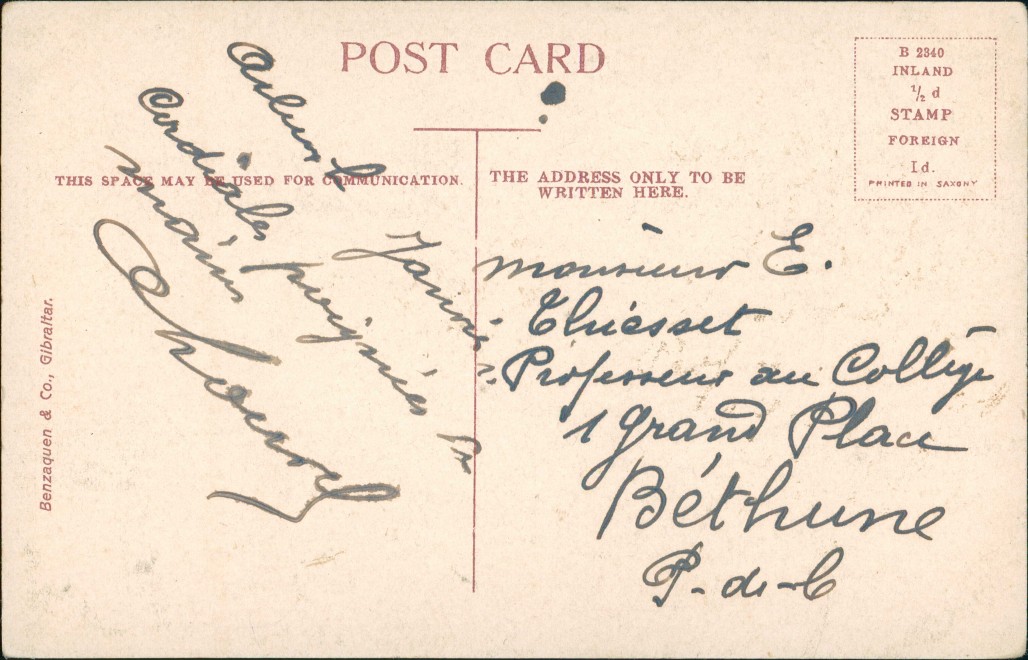 POST CARD
B 2340
INLAND
½ d
STAMP
FOREIGN
1d.
PRINTED IN SAXONY
THIS SPACE MAY BE USED FOR COMMUNICATION.
THE ADDRESS ONLY TO BE
WRITTEN HERE.
Cordiales poignées de
mains
Monsieur E.
Thiesset
Professeur au Collège
1 Grand Place
Béthune
P-de-C
Benzaquen & Co., Gibraltar.